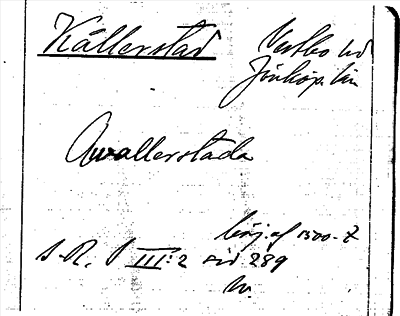 Källerstad
Västbo hd
Jönköp. län
Qwallerstada
börj. af 1500-t
S.R.P III:2 sid 289